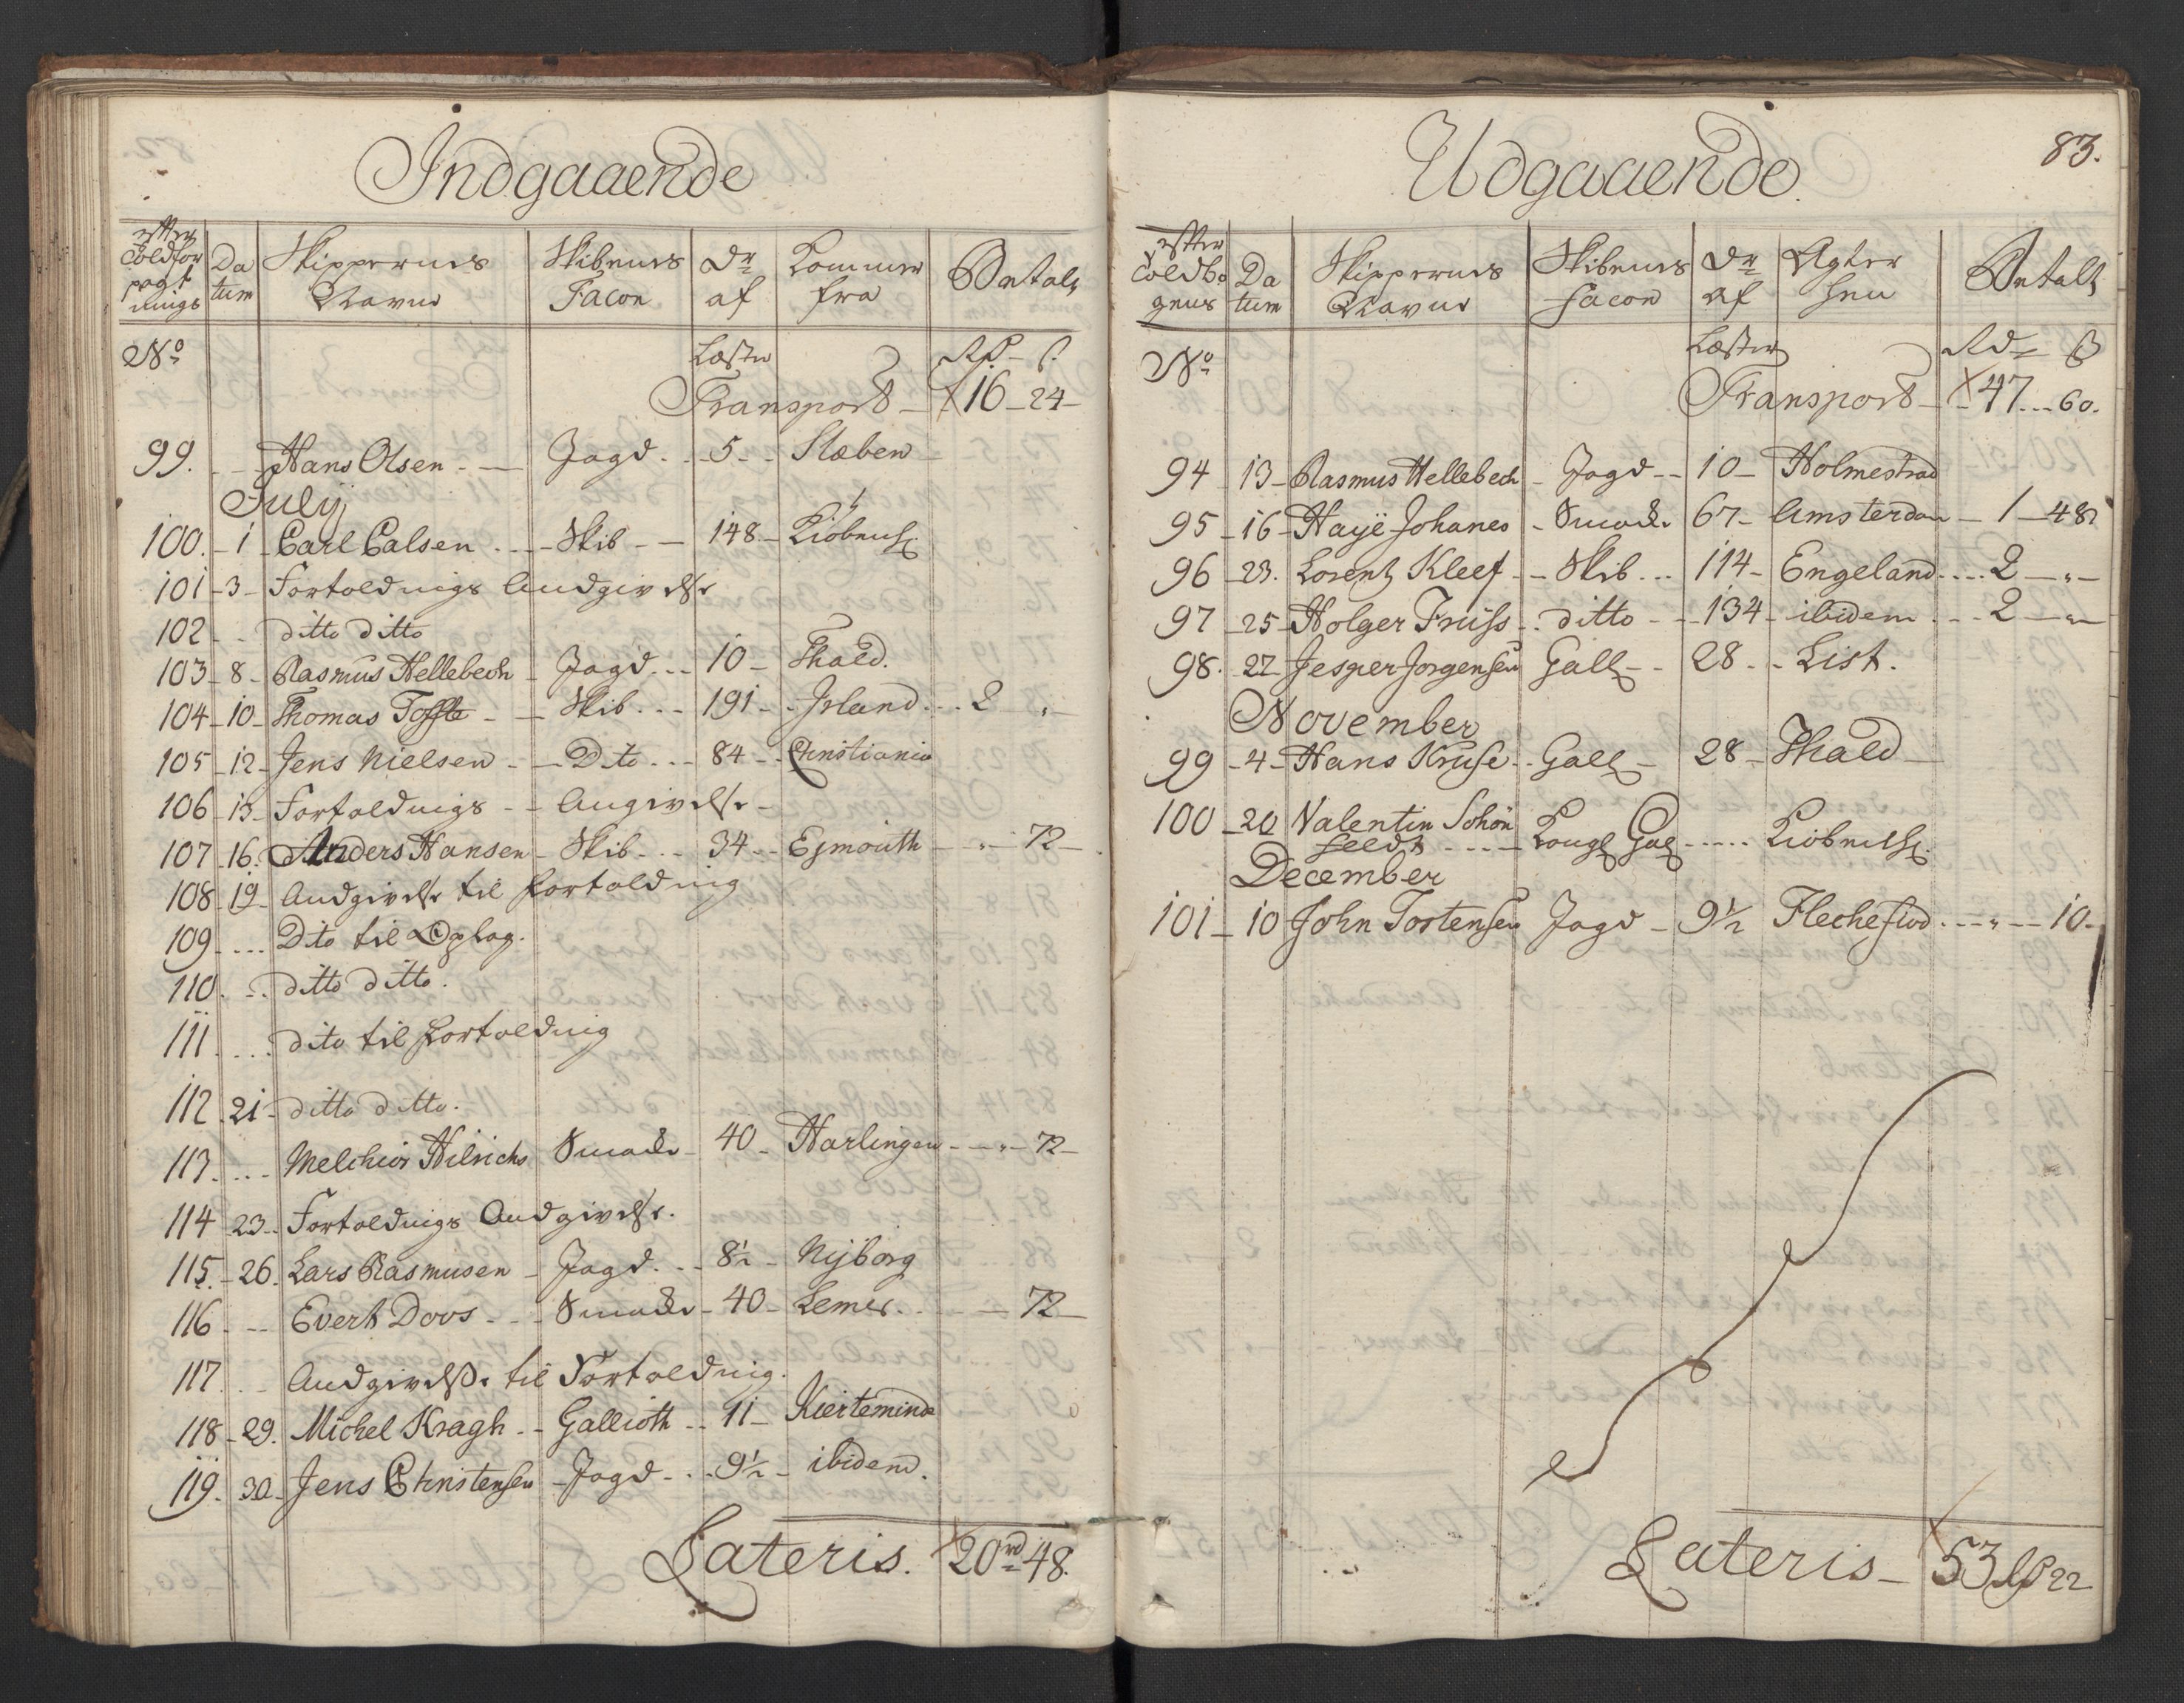 Indgaaende
efter Toldfor pagt nings No
Da tum
Skippernes Navne
Skibenes Facon
Dr af Læster
Kommer fra
Betalt Rd ß
Transport 16 - 24
99. Hans Olsen Jagd 5 Slæben
July
100. 1 Carl Calsen Skib 148 Kiöbenh
101 3 Fortoldnings Andgivelse
102 ditto ditto
103 8 Rasmus Hellebech Jagd 10 Fhald.
104 10 Thomas Toffte Skib 191 Irland 2 "
105 12 Jens Nielsen Dito 84 Christiania
106 15 Fortoldnings Angivelse
107 16. Anders Hansen Skib 34 Exmouth " 72
108 19 Andgivelse til Fortoldning
109 Dito til Oplag.
110. ditto ditto.
111 dito til Fortoldning
112 21 ditto ditto.
113. Melchior Hilrichs Smacke 40 Harlingen " 72
114 23 Fortoldnings Andgivelse.
115. 26. Lars Rasmusen Jagd 8½ Nijborg
116 Evert Doos Smacke 40 Lemer 72
117 Andgivelse til Fortoldning.
118 29. Michel Kragh Gallioth 11 Kierteminde
119. 30 Jens Christensen Jagd 9½ ibidem.
Lateris. 20 rd 48.
Udgaaende.
83.
efter Toldbo gens No
Da tum
Skippernes Navne
Skibenes facon
Dr af Læster
Agter hen
Betalt Rd ß
Transport 47 60.
94 13 Rasmus Hellebech Jagd 10 Holmestrad
95 16 Haye Johanes Smacke 67 Amsterdam 1 48
96 23. Lorentz Kleef Skib 114 Engeland 2 "
97 25 Holger Fruss ditto 134 ibidem 2 "
98. 27 Jesper Jorgensen Gall 28 List.
November
99 4 Hans Kruse Gall 28 Fhald
100 20 Valentin Schön
feldt Kongl Gal Kiöbenh.
December
101 10 John Tostensen Jagd 9½ Flechefiod " 10.
Lateris 53 Rd 22